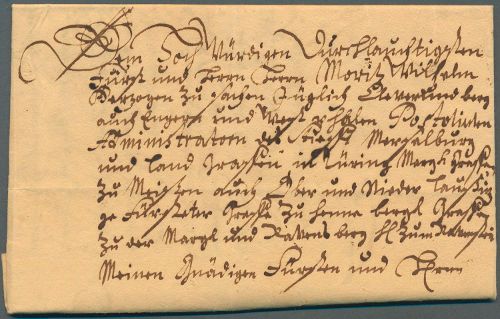 Dem Hoch Würdigen Durchlauchtigsten
Fürst und Herrn Herrn Moritz Wilhelm
Hertzogen zu Sachsen Jüglich Cleve und berg
auch Engern und West phalen Postolirten
Administratorn des Stiefts Merseburg
und Land Graffen in Türing Margk Graffen
zu Meissen auch Ober und Nieder Laussi
ge Fürsteter Graffe zu Henne bergk Graffen
zu der Margk und Ravens berg H zum Ravenstei
Meinen Gnädigen Fürsten und Herrn